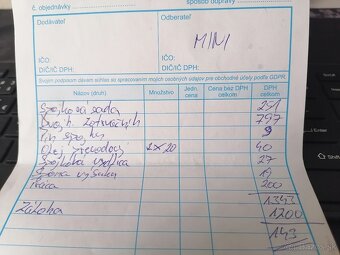 č. objednávky
spôsob dopravy
Dodávateľ
Odberateľ
MIM
IČO:
DIČ/IČ DPH:
IČO:
DIČ/IČ DPH:
Svojím podpisom dávam súhlas so spracovaním mojich osobných údajov pre obchodné účely podľa GDPR.
Názov (druh) Množstvo Jedn. cena Cena bez DPH celkom DPH celkom
Spojková sada
797
9
Olej prevodový 40
Spojková 27
19
Práca 200
1343
Záloha 1200
143